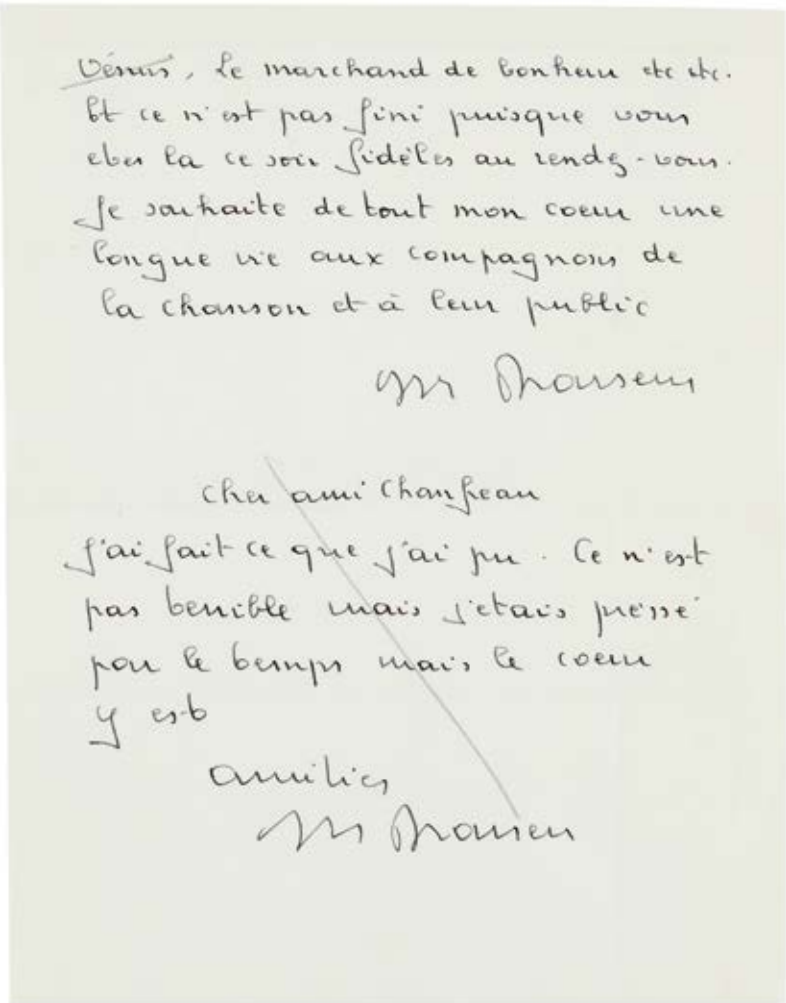 Vénus, Le marchand de bonheur etc etc.
Et ce n'est pas fini puisque vous
etes la ce soir fidèles au rendez-vous.
Je souhaite de tout mon coeur une
longue vie aux compagnons de
la chanson et à leur public

Cher ami Chanfreau
J'ai fait ce que j'ai pu. Ce n'est
pas terrible mais j'etais pressé
par le temps mais le coeur
y est
amitiés